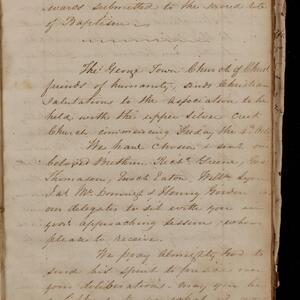 wards submitted to the sacred rite
of Baptism
The George Town Church of Christ
friends of humanity, sends Christian
Salutations to the Association to be
held with the upper Silver Creek
Church commencing Friday the
We have Chosen & sent our
beloved Brethren Rich'd Greene,
Thomason, Enoch Eaton, Will'm
Ja's & Henry Gordon
our delegates to sit with you in
your approaching session, whom
please to receive.
We pray Almighty God to
send his spirit to
your deliberations. may you be